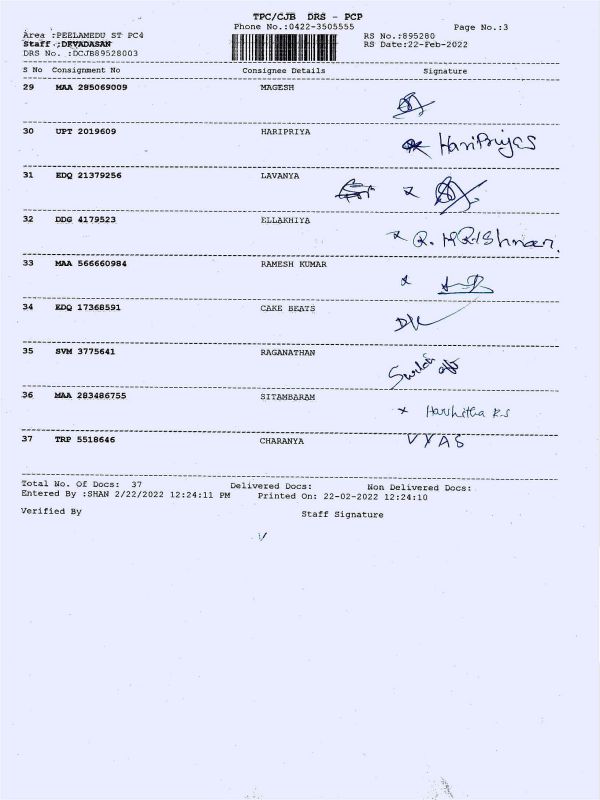 TPC/CJB DRS - PCP
Phone No.:0422-3505555
Page No.:3
Area :PEELAMEDU ST PC4
RS No.:895280
Staff.:DEVADASAN
RS Date:22-Feb-2022
DRS No. :DCJB89528003
S No Consignment No Consignee Details Signature
29 MAA 285069009 MAGESH
30 UPT 2019609 HARIPRIYA
HariPriyas
31 EDQ 21379256 LAVANYA
x
32 DDG 4179523 ELLAKHIYA
x
33 MAA 566660984 RAMESH KUMAR
x
34 EDQ 17368591 CAKE BEATS
35 SVM 3775641 RAGANATHAN
36 MAA 283486755 SITAMBARAM
x Harshitha R.S
37 TRP 5518646 CHARANYA VYAS
Total No. Of Docs: 37 Delivered Docs: Non Delivered Docs:
Entered By :SHAN 2/22/2022 12:24:11 PM Printed On: 22-02-2022 12:24:10
Verified By Staff Signature